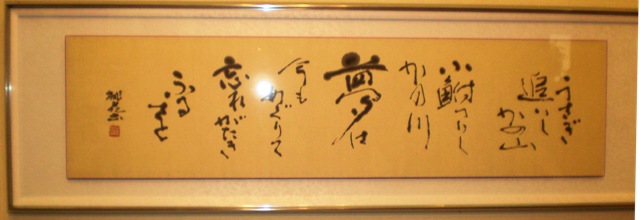 うさぎ
追いし
かの山
小鮒つりし
かの川
夢は
今も
めぐりて
忘れがたき
ふる
さと